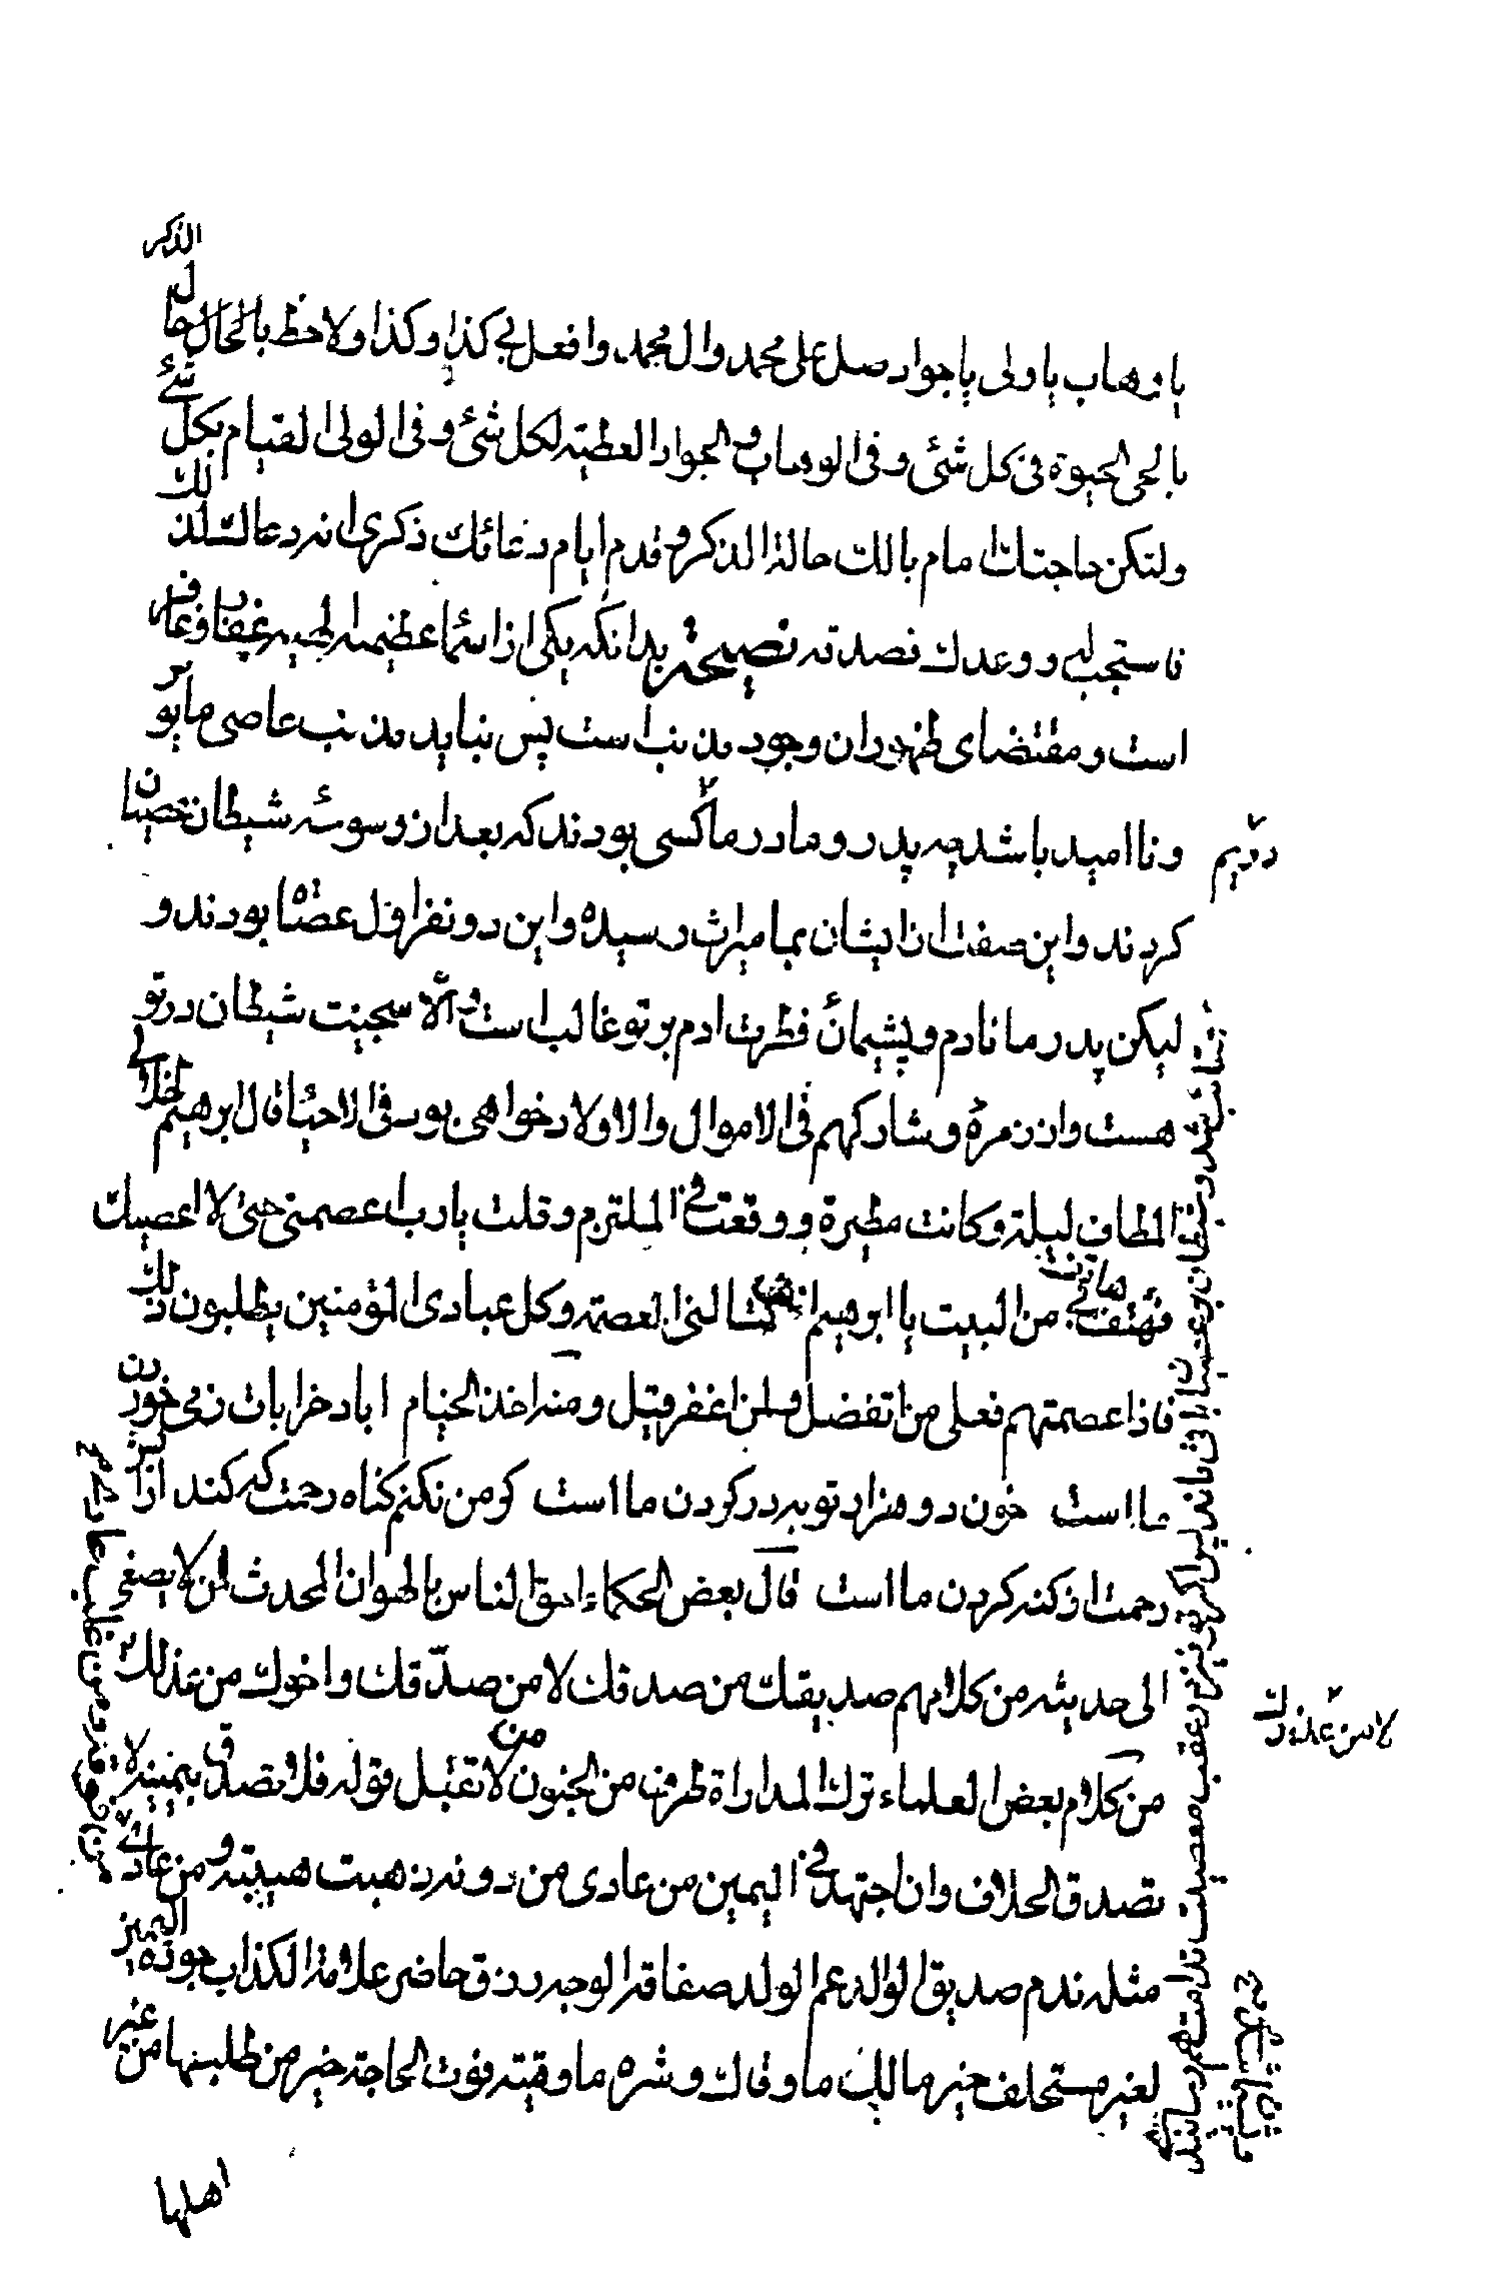 یا وهاب یا ولی یا جواد صل علی محمد وال محمد وافعل بی کذا وکذا ولاحظ بالحال حال الذکر
بالحی الحیوة فی کل شئ وفی الوهاب والجواد العطیته لکل شئ وفی الولی القیام بکل شئ
ولتکن حاجتك امام بالك حالة الذکر وقدم ایام دعائك ذکری انه دعاك لذلك
فاستجب لی ووعدك فصدقه نصیحة بدانکه یکی از اسماء عظیمه الهیه غفار وغافر
است ومقتضای ظهور ان وجود مذنب است پس نباید مذنب عاصی مایوس
وناامید باشد چه پدر ومادر ما کسی بودند که بعد از وسوسه شیطان عصیان
کردند واین صفت از ایشان بما میراث رسیده واین دو نفر اول عصاة بودند و
لیکن پدر ما نادم وپشیمان فطرت ادم بر تو غالب است والا سجیت شیطان در تو
هست واز زمره وشارکهم فی الاموال والاولاد خواهی بود فی الاحیا قال ابرهیم خلالی
المطاف لیلة وکانت مطیرة ووقعت فی الملتزم وقلت یا رب اعصمنی حتی لا اعصیك
فهتف هاتف من البیت یا ابرهیم انت تسالنی العصمته وکل عبادی المؤمنین یطلبون ذلك
فاذا عصمتهم فعلی من اتفضل ولمن اغفر قیل ومنه اخذ الخیام اباد خرابات ز می خوردن
ما است خون دو هزار توبه در کردن ما است کو من نکنم کناه رحمت که کند ارایش
رحمت از کنه کردن ما است قال بعض الحکماء احق الناس بالهوان المحدث لمن لا یصغی
الی حدیثه من کلامهم صدیقك من صدقك لا من صدّقك واخوك من عذلك
لا من عذرك
من کلام بعض العلماء ترك المداراة طرف من الجنون من لا تقبل قوله فلا تصدق بیمینه لا
تصدق الحلاف وان اجتهد فی الیمین من عادی من دونه ذهبت هیبته ومن عادی
مثله ندم صدیق الوالد عم الولد صفاقة الوجه رزق حاضر علامة الکذاب جوده الیمین
لغیر مستحلف خیر مالك ما وقاك وشره ما وقیته فوت الحاجة خیر من طلبها من غیر
اهلها